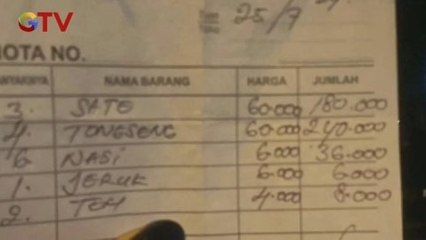 GTV
= 25/7
NOTA NO.
NYAKNYA NAMA BARANG HARGA JUMLAH
3. SATE 60.000 180.000
4. TONGSENG 60.000 240.000
6 NASI 6.000 36.000
1. JERUK 6.000 6.000
2. TEH 4.000 8.000